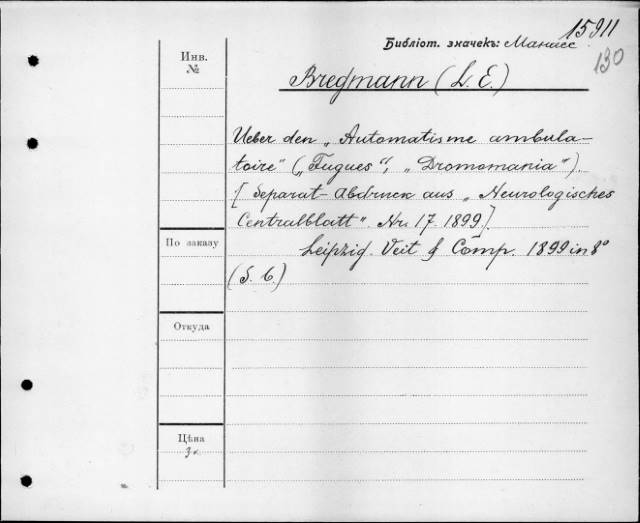 15911
Библіот. значекъ:
130
Инв.
№
Bregmann (L. E.)
Ueber den „Automatisme ambula-
toire" („Fugues", „Dromomania").
[Separat-Abdruck aus „Neurologisches
Centralblatt". Nr. 17. 1899].
По заказу
Leipzig. Veit & Comp. 1899 in 8°
(S. 6.)
Откуда
Цѣна